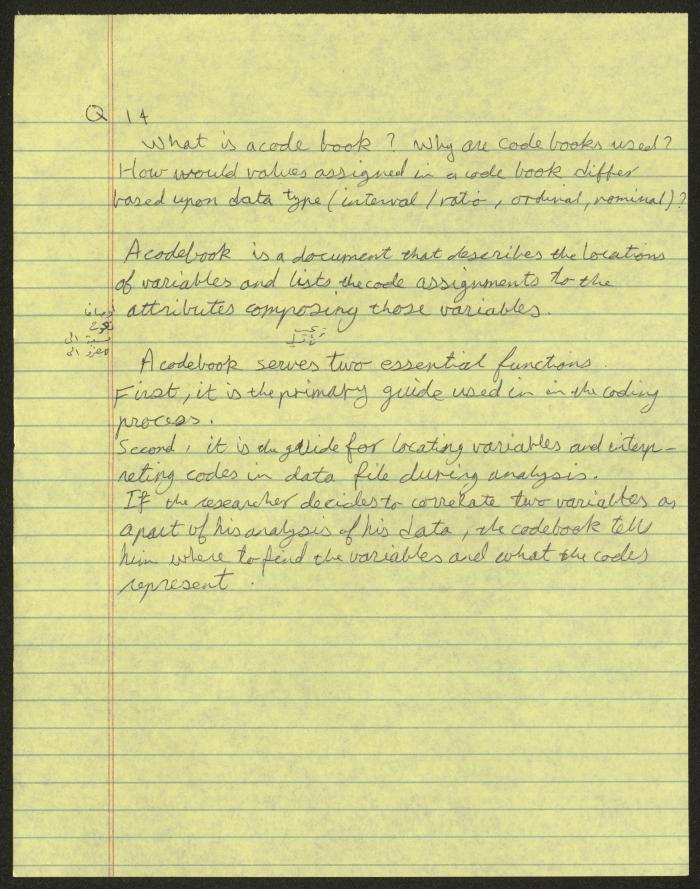 Q 14
What is a code book ? Why are code books used?
How would values assigned in a code book differ
based upon data type (interval / ratio , ordinal, nominal)?
A codebook is a document that describes the locations
of variables and lists the code assignments to the
attributes composing those variables.
A codebook serves two essential functions.
First, it is the primary guide used in in the coding
process.
Second, it is the guide for locating variables and interp-
reting codes in data file during analysis.
If the researcher decides to correlate two variables as
a part of his analysis of his data, the codebook tells
him where to find the variables and what the codes
represent .